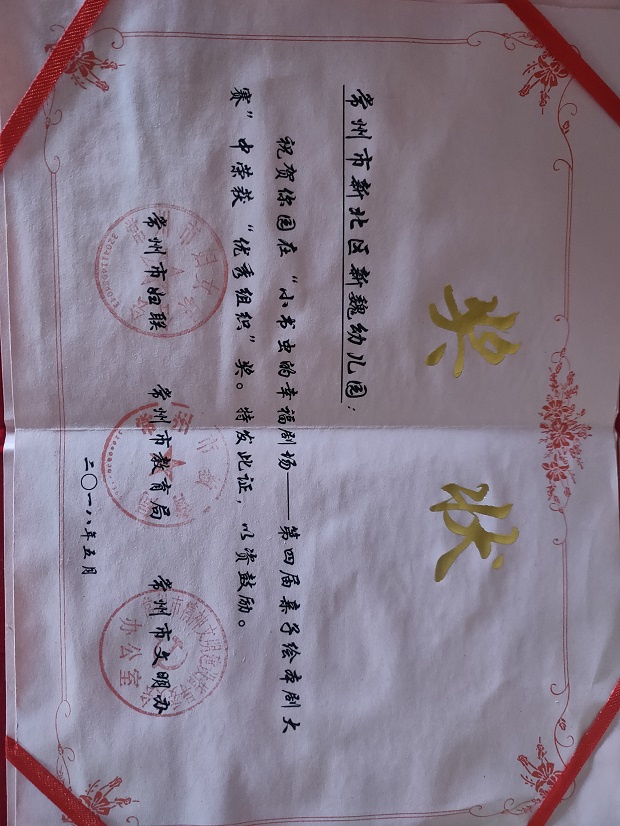 奖状
常州市新北区新魏幼儿园：
祝贺你园在“小书虫的幸福剧场——第四届亲子绘本剧大
赛”中荣获“优秀组织”奖。特发此证，以资鼓励。
常州市妇联 常州市教育局 常州市文明办
二〇一八年五月
办公室